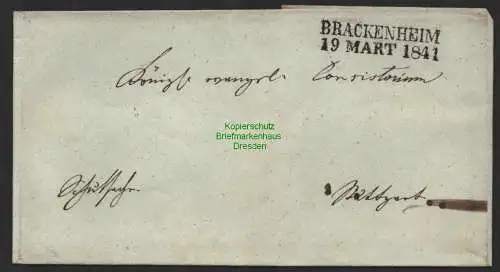 BRACKENHEIM
19 MART 1841
Königl. evangel. Consistorium
Kopierschutz
Briefmarkenhaus
Dresden
Schulsache.
Stuttgart